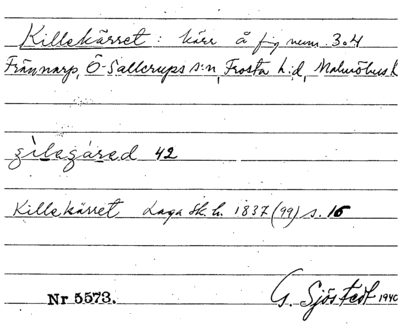 Killekärret: kärr å fig num. 3o4
Frännarp, Ö-Sallerups s:n, Frosta h:d, Malmöhus l.
42
Killekärret Laga sk. h. 1837 (99) s. 16
Nr 5573. G. Sjöstedt 1940